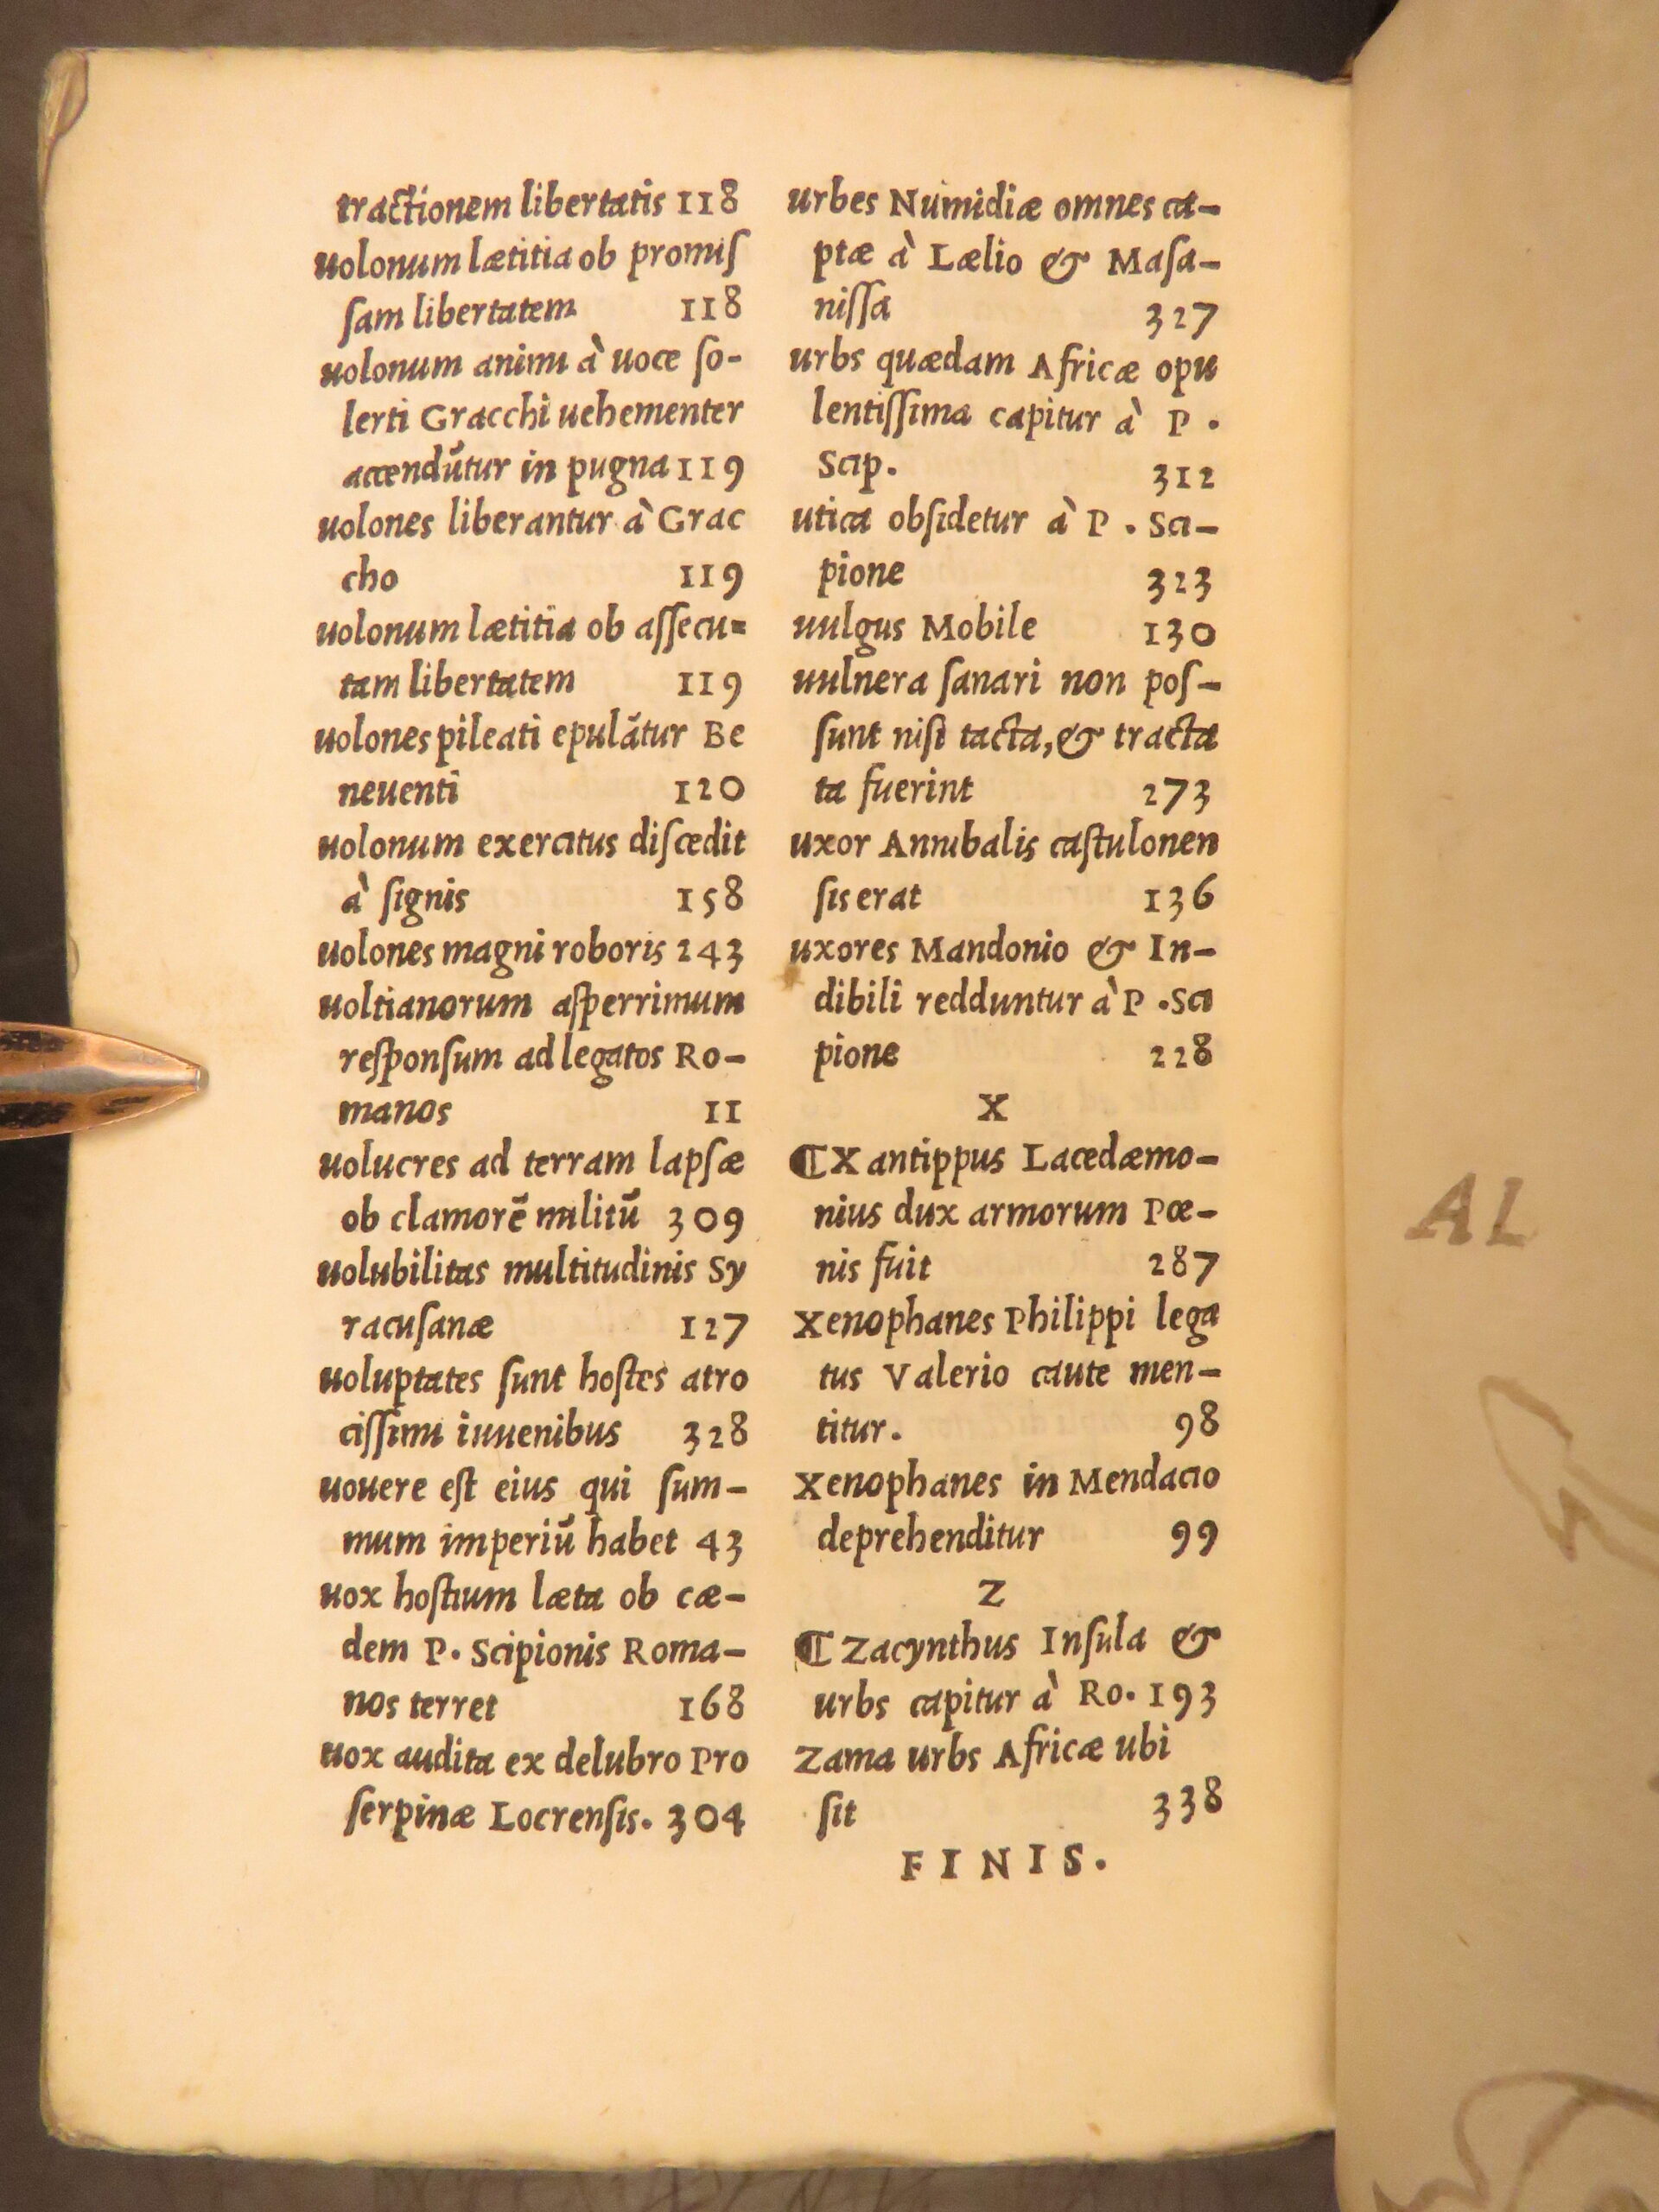 tractionem libertatis 118
uolonum lætitia ob promiſ
ſam libertatem 118
uolonum animi à uoce ſo-
lerti Gracchi uehementer
accendūtur in pugna 119
uolones liberantur à Grac
cho 119
uolonum lætitia ob aſſecu=
tam libertatem 119
uolones pileati epulātur Be
neuenti 120
uolonum exercitus diſcedit
à ſignis 158
uolones magni roboris 243
uoltianorum aſperrimum
reſponſum ad legatos Ro-
manos 11
uolucres ad terram lapſæ
ob clamorē militū 309
uolubilitas multitudinis Sy
racuſanæ 127
uoluptates ſunt hoſtes atro
ciſſimi iuuenibus 328
uouere eſt eius qui ſum-
mum imperiū habet 43
uox hoſtium læta ob cæ-
dem P. Scipionis Roma-
nos terret 168
uox audita ex delubro Pro
ſerpinæ Locrenſis. 304
urbes Numidiæ omnes ca-
ptæ à Lælio & Maſa-
niſſa 327
urbs quædam Africæ opu
lentiſſima capitur à P.
Scip. 312
utica obſidetur à P. Sci-
pione 323
uulgus Mobile 130
uulnera ſanari non poſ-
ſunt niſi tacta, & tracta
ta fuerint 273
uxor Annibalis caſtulonen
ſis erat 136
uxores Mandonio & In-
dibili redduntur à P. Sci
pione 228
X
⸿Xantippus Lacedæmo-
nius dux armorum Pœ-
nis fuit 287
Xenophanes Philippi lega
tus Valerio caute men-
titur. 98
Xenophanes in Mendacio
deprehenditur 99
Z
⸿Zacynthus Inſula &
urbs capitur à Ro. 193
Zama urbs Africæ ubi
ſit 338
FINIS.
AL